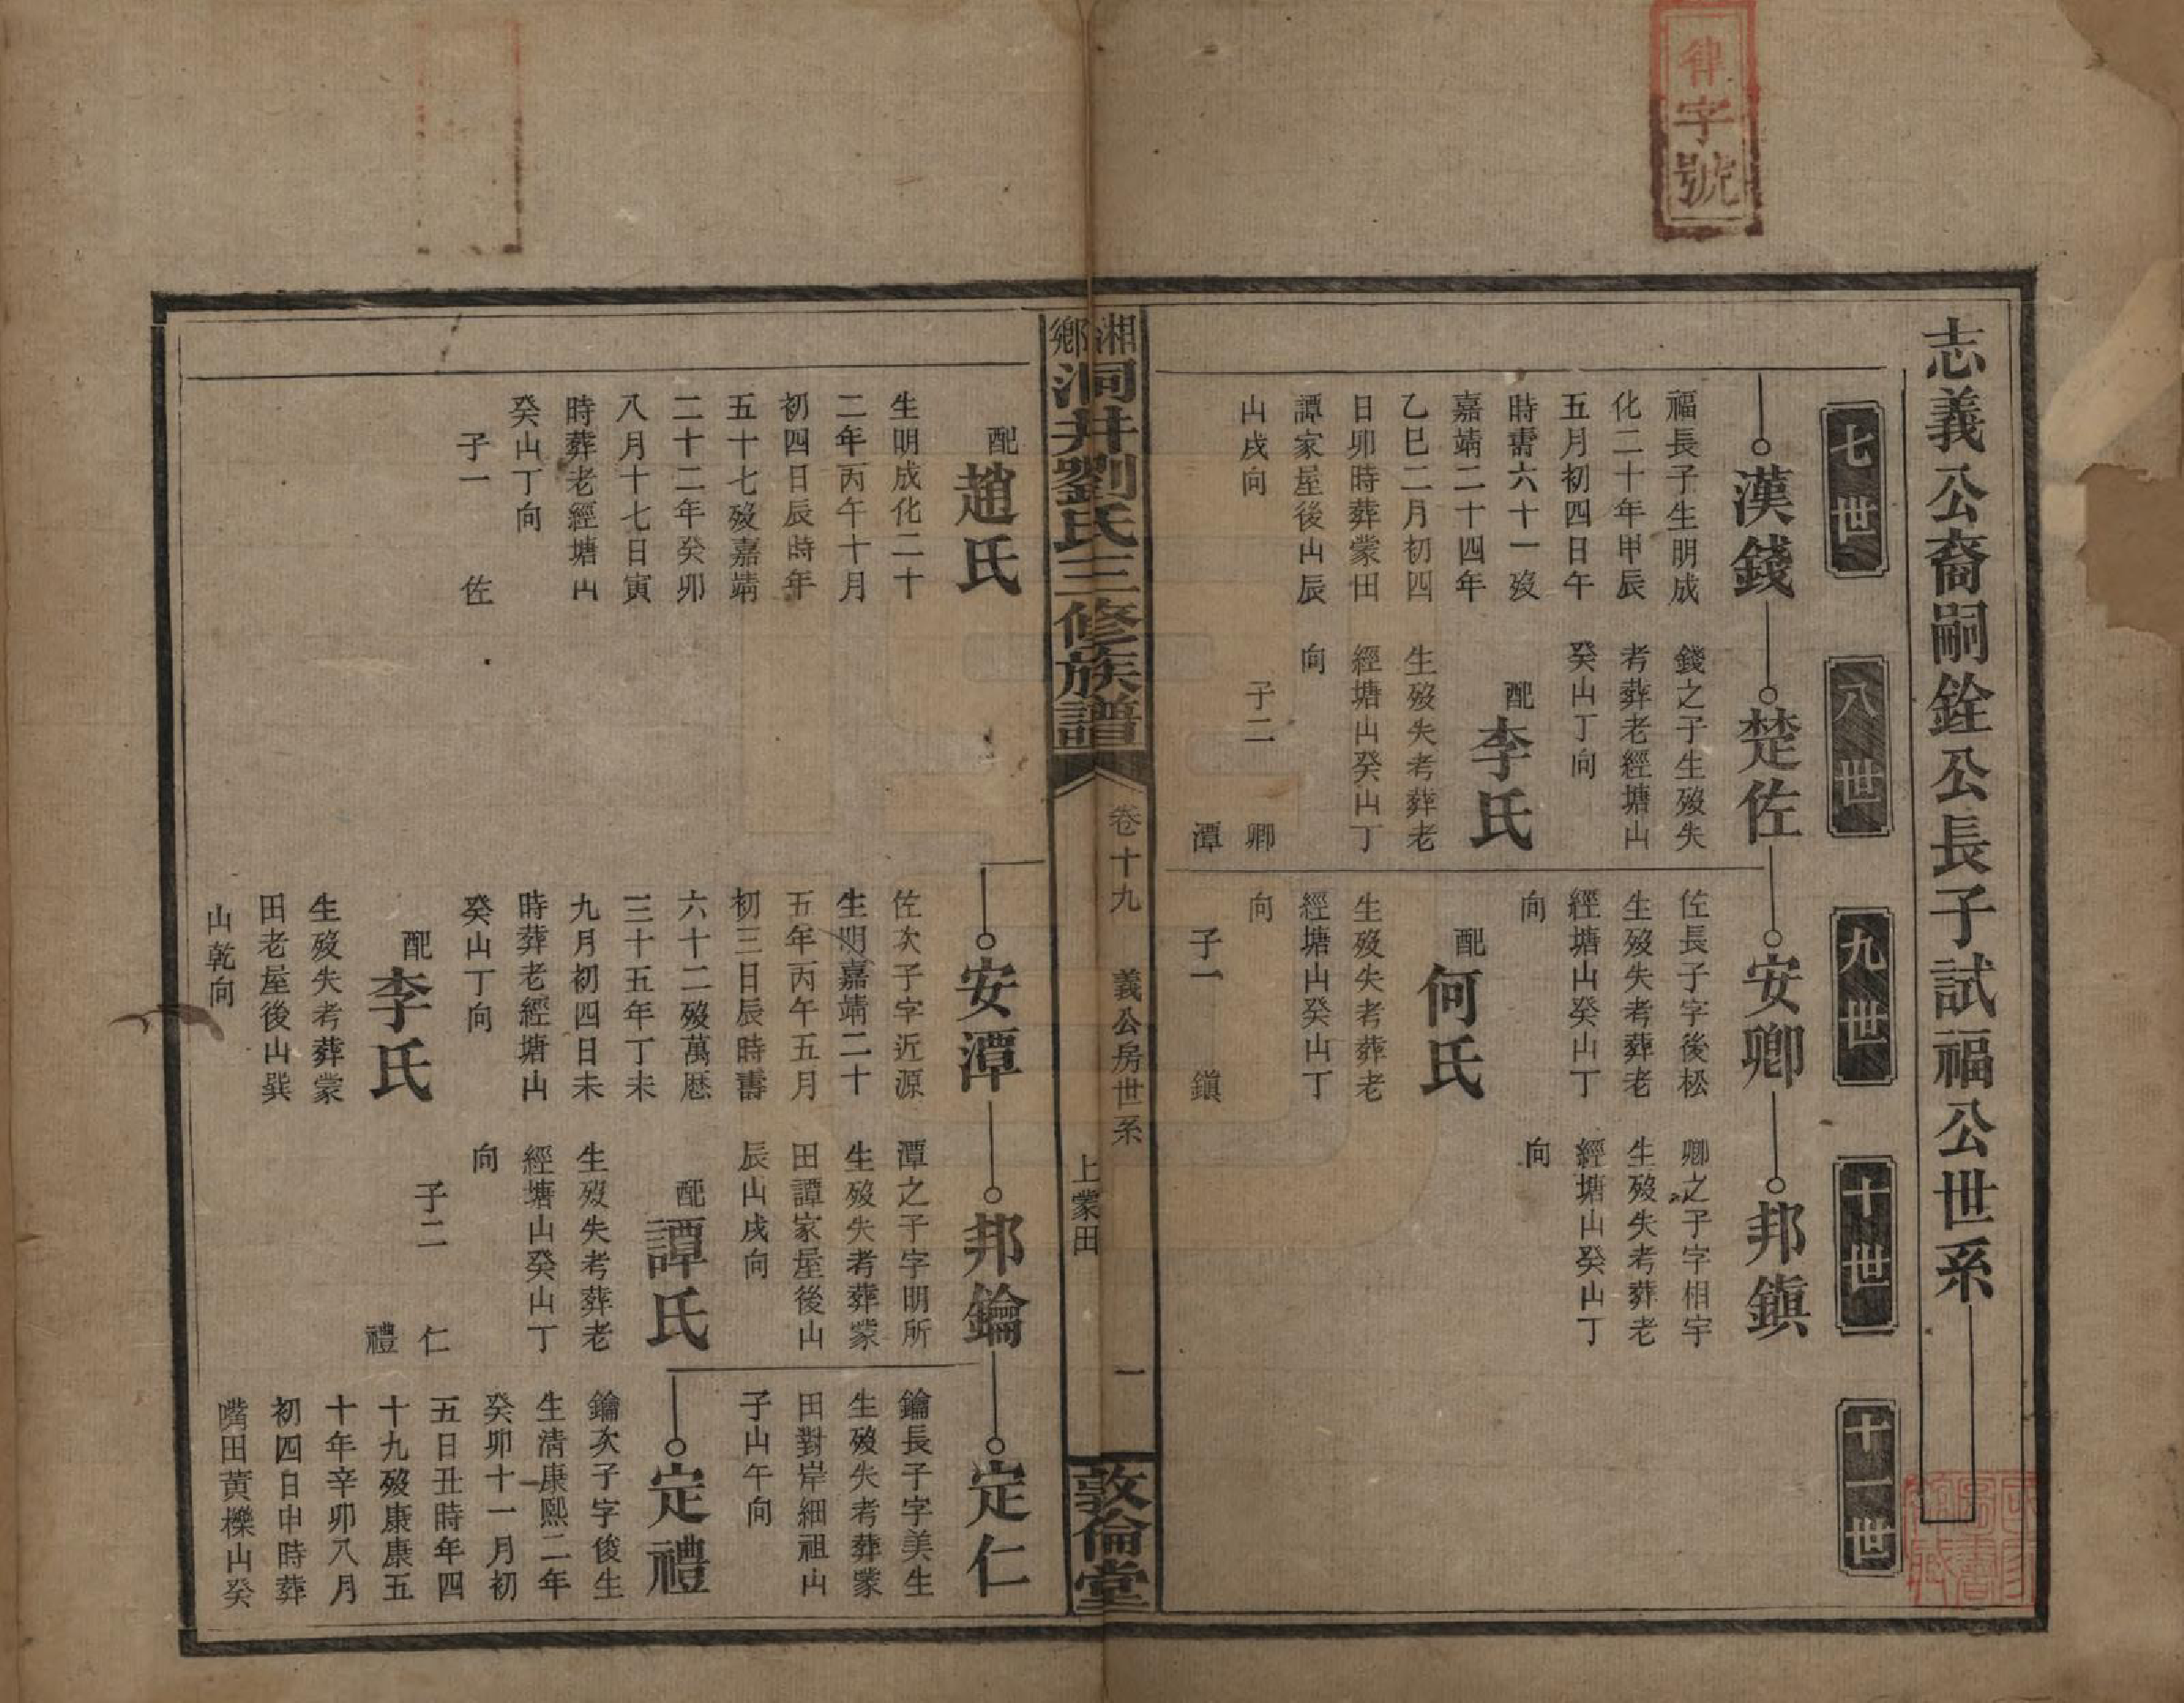 律字號
志義公裔嗣銓公長子試福公世系
七世
八世
九世
十世
十一世
漢錢
福長子生明成
化二十年甲辰
五月初四日午
時壽六十一歿
嘉靖二十四年
乙巳二月初四
日卯時葬蒙田
譚家屋後山辰
山戌向
楚佐
錢之子生歿失
考葬老經塘山
癸山丁向
配李氏
生歿失考葬老
經塘山癸山丁
向
子二 卿
潭
安卿
佐長子字後松
生歿失考葬老
經塘山癸山丁
向
配何氏
生歿失考葬老
經塘山癸山丁
向
子一 鎮
邦鎮
卿之子字相宇
生歿失考葬老
經塘山癸山丁
向
湘鄉洞井劉氏三修族譜
卷十九 義公房世系 一
上蒙田
敦倫堂
配趙氏
生明成化二十
二年丙午十月
初四日辰時年
五十七歿嘉靖
二十二年癸卯
八月十七日寅
時葬老經塘山
癸山丁向
子一 佐
安潭
佐次子字近源
生明嘉靖二十
五年丙午五月
初三日辰時壽
六十二歿萬曆
三十五年丁未
九月初四日未
時葬老經塘山
癸山丁向
配李氏
生歿失考葬蒙
田老屋後山巽
山乾向
邦鑰
潭之子字明所
生歿失考葬蒙
田譚家屋後山
辰山戌向
配譚氏
生歿失考葬老
經塘山癸山丁
向
子二 仁
禮
定仁
鑰長子字美生
生歿失考葬蒙
田對岸細祖山
子山午向
定禮
鑰次子字俊生
生清康熙二年
癸卯十一月初
五日丑時年四
十九歿康康五
十年辛卯八月
初四日申時葬
嘴田黃櫟山癸